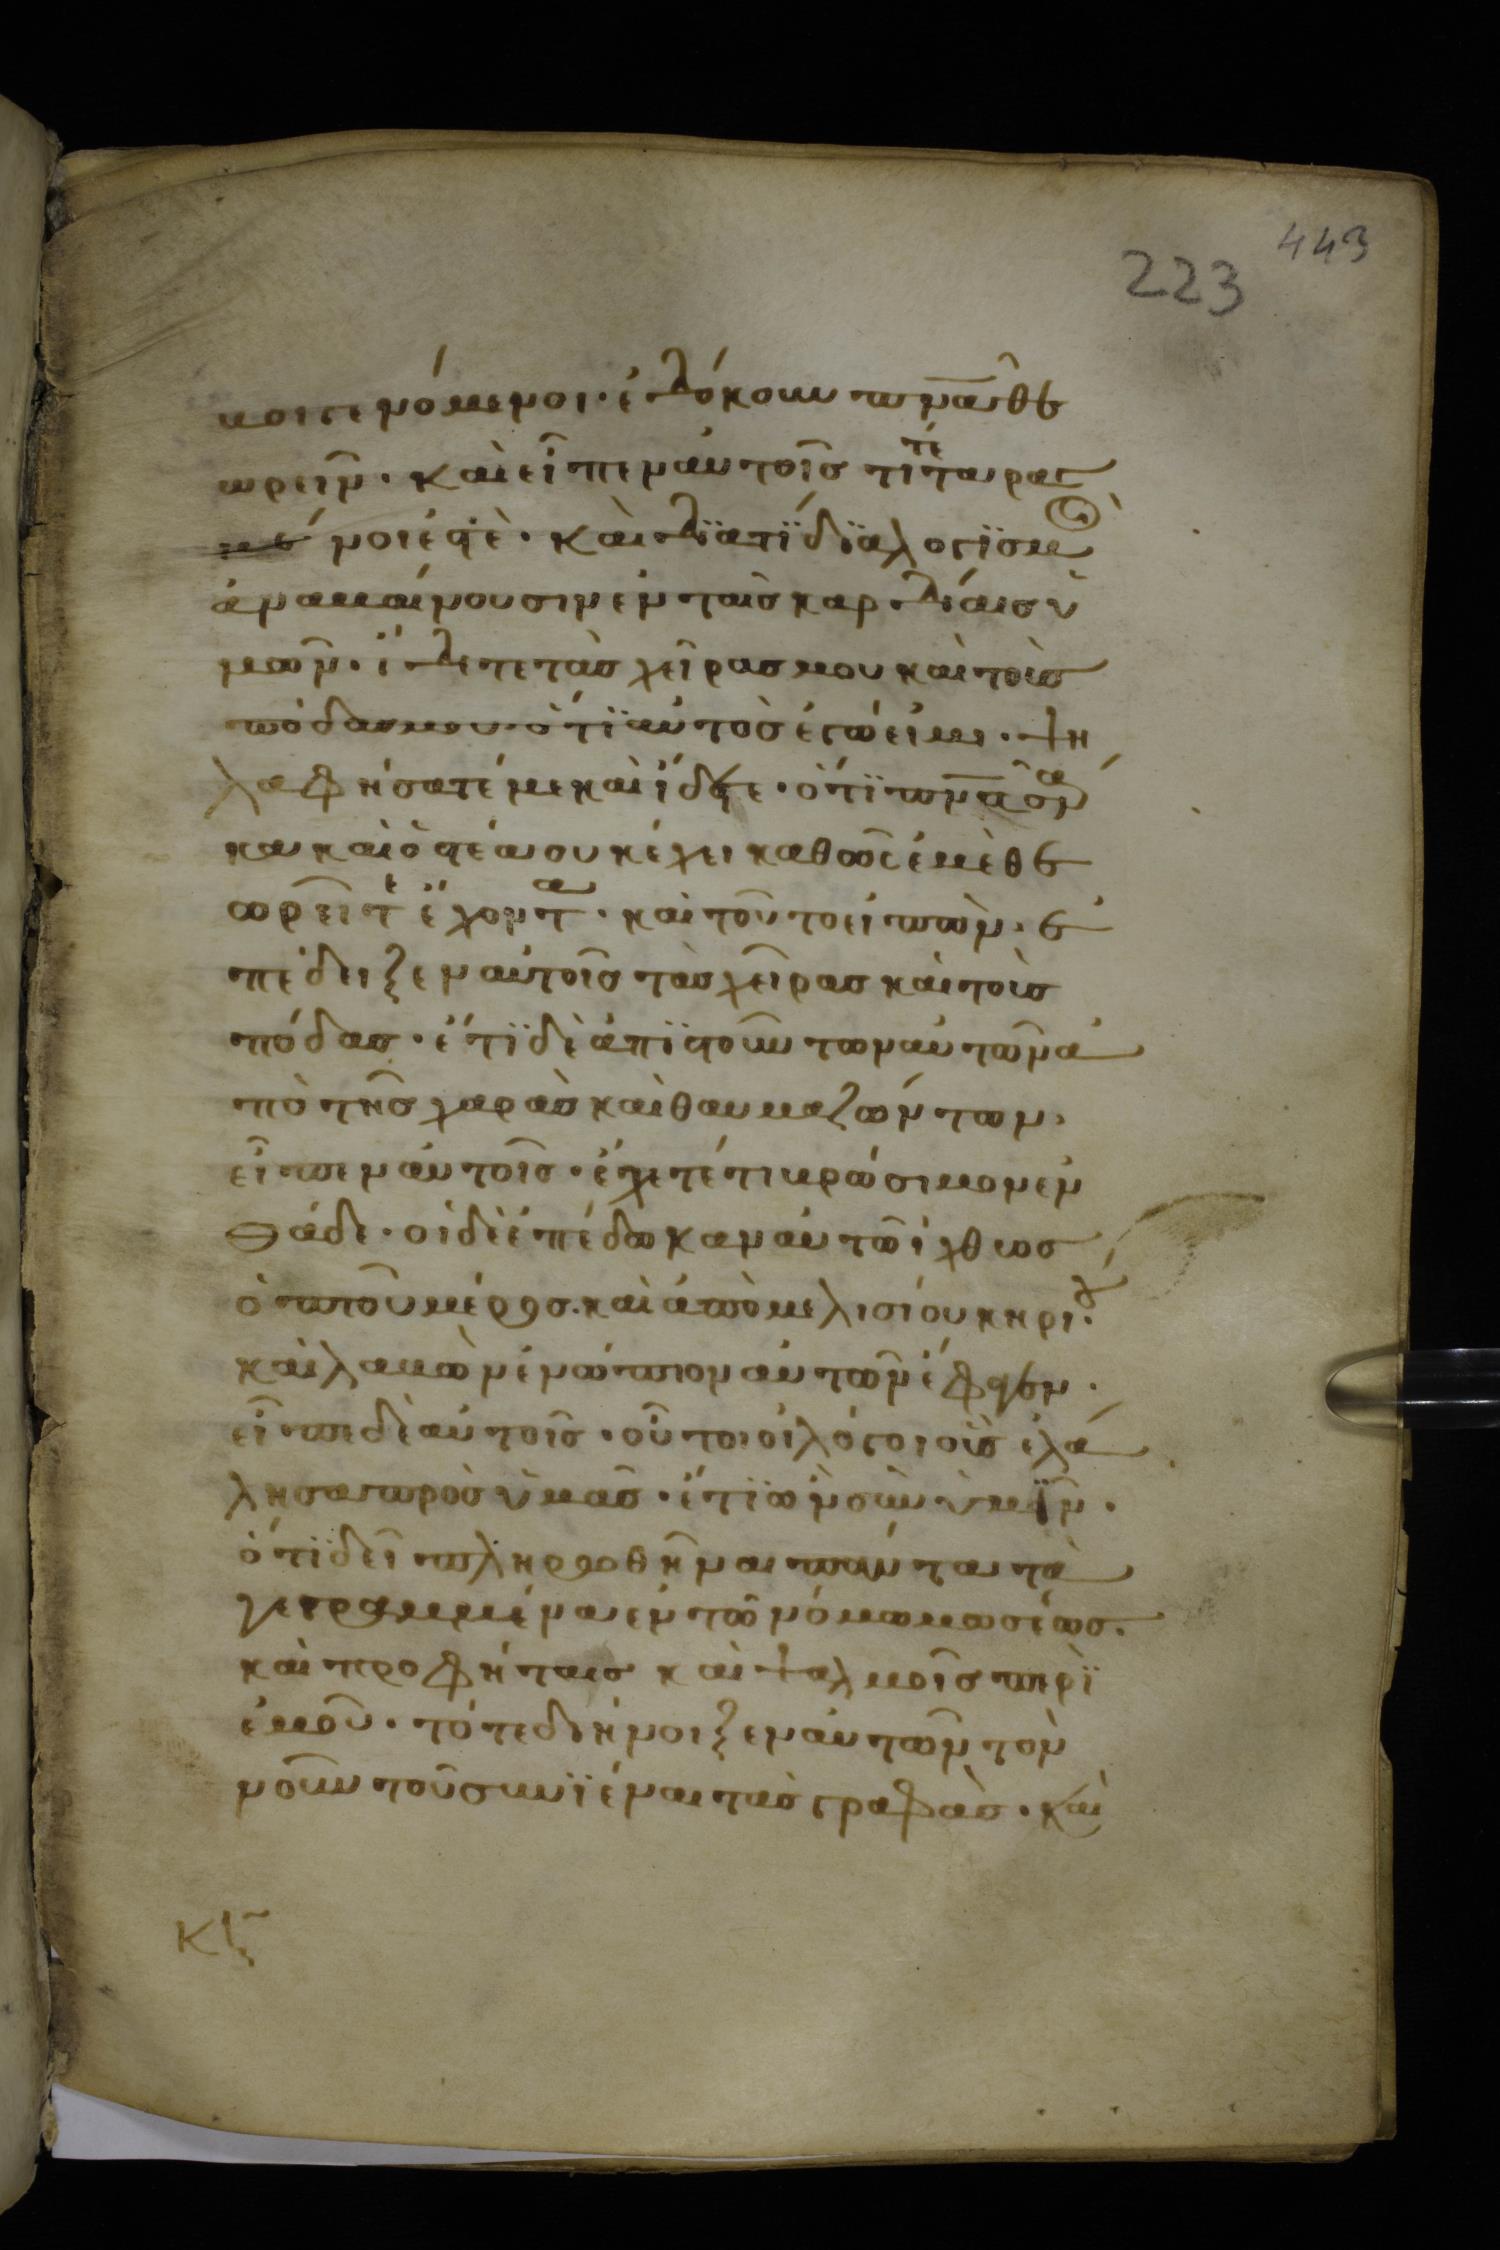 443
223
βοι γενόμενοι· ἐδόκουν πν̅α θε
ωρεῖν· καὶ εἶπεν αὐτοῖς τί τεταραγ
μένοι ἐστὲ· καὶ διατί διαλογισμοὶ
ἀναβαίνουσιν ἐν ταῖς καρδίαις ὑ
μῶν· ἴδετε τὰς χεῖρας μου καὶ τοὺς
πόδας μου· ὅτι αὐτὸς ἐγώ εἰμι· ψη
λαφήσατέ με καὶ ἴδετε· ὅτι πν̅α σάρ
κα καὶ ὀστέα οὐκ ἔχει καθὼς ἐμὲ θε
ωρεῖτε ἔχοντα· καὶ τοῦτο εἰπὼν· ἐ
πέδειξεν αὐτοῖς τὰς χεῖρας καὶ τοὺς
πόδας· ἔτι δὲ ἀπιστούντων αὐτῶν ἀ
πὸ τῆς χαρᾶς καὶ θαυμαζόντων·
εἶπεν αὐτοῖς· ἔχετέ τι βρώσιμον ἐν
θάδε· οἱ δὲ ἐπέδωκαν αὐτῶ ἰχθύος
ὀπτοῦ μέρος· καὶ ἀπὸ μελισίου κηρίου·
καὶ λαβὼν ἐνώπιον αὐτῶν ἔφαγεν·
εἶπε δὲ αὐτοῖς· οὗτοι οἱ λόγοι οὓς ἐλά
λησα πρὸς ὑμᾶς· ἔτι ὢν σὺν ὑμῖν·
ὅτι δεῖ πληρωθῆναι πάντα τὰ
γεγραμμένα ἐν τῶ νόμω μωσέως·
καὶ προφήταις καὶ ψαλμοῖς περὶ
ἐμοῦ· τότε διήνοιξεν αὐτῶν τὸν
νοῦν τοῦ συνιέναι τὰς γραφὰς· καὶ
κζ